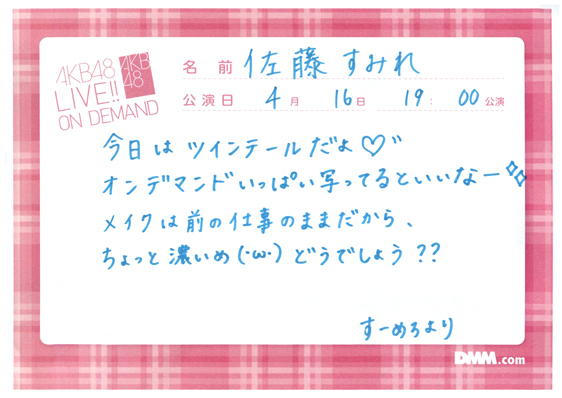 AKB48
LIVE!!
ON DEMAND
AKB
48
名前 佐藤すみれ
公演日 4月 16日 19:00公演
今日は ツインテールだよ♡〃
オンデマンドいっぱい写ってるといいなー
メイクは前の仕事のままだから、
ちょっと濃いめ(･ω･) どうでしょう??
すーめろより
DMM.com